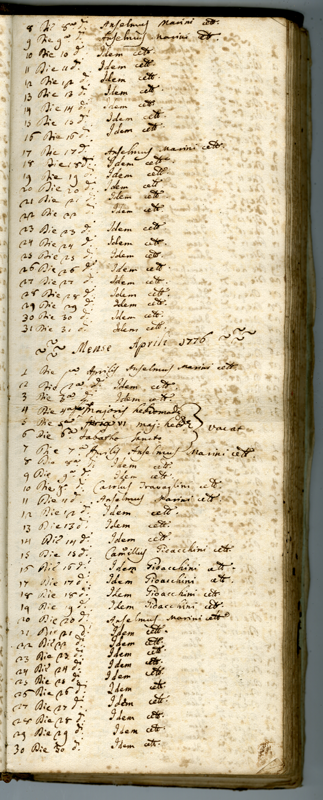 8 Die 8ª d.ª Anselmus Marini cel.
9 Die 9ª d.ª Anselmus Marini cel.
10 Die 10 d.ª Idem cel.
11 Die 11 d.ª Idem cel.
12 Die 12 d.ª Idem cel.
13 Die 13 d.ª Idem cel.
14 Die 14 d.ª Idem cel.
15 Die 15 d.ª Idem cel.
16 Die 16 d.ª Idem cel.
17 Die 17 d.ª Anselmus Marini cel.
18 Die 18 d.ª Idem cel.
19 Die 19 d.ª Idem cel.
20 Die 20 d.ª Idem cel.
21 Die 21 d.ª Idem cel.
22 Die 22 Idem cel.
23 Die 23 d.ª Idem cel.
24 Die 24 d.ª Idem cel.
25 Die 25 d.ª Idem cel.
26 Die 26 d.ª Idem cel.
27 Die 27 d.ª Idem cel.
28 Die 28 d.ª Idem cel.
29 Die 29 d.ª Idem cel.
30 Die 30 d.ª Idem cel.
31 Die 31 d.ª Idem cel.
Mense Aprili 1776
1 Die pª Aprilis Anselmus Marini cel.
2 Die 2ª d.ª Idem cel.
3 Die 3ª d.ª Idem cel.
4 Die 4ª Majoris hebdomadæ
5 Die 5ª feria VI maj: hebdæ vacat
6 Die 6ª Sabatho Sancto
7 Die 7ª Aprilis Anselmus Marini cel.
8 Die 8ª d.ª Idem cel.
9 Die 9ª d.ª Idem cel.
10 Die Carolus cel.
11 Die 11 d.ª Anselmus Marini cel.
12 Die 12 d.ª Idem cel.
13 Die 13 d.ª Idem cel.
14 Die 14 d.ª Idem cel.
15 Die 15 d.ª Camillus Fidacchini cel.
16 Die 16 d.ª Idem Fidacchini cel.
17 Die 17 d.ª Idem Fidacchini cel.
18 Die 18 d.ª Idem Fidacchini cel.
19 Die 19 d.ª Idem Fidacchini cel.
20 Die 20 d.ª Anselmus Marini cel.
21 Die 21 d.ª Idem cel.
22 Die 22 d.ª Idem cel.
23 Die 23 d.ª Idem cel.
24 Die 24 d.ª Idem cel.
25 Die 25 d.ª Idem cel.
26 Die 26 d.ª Idem cel.
27 Die 27 d.ª Idem cel.
28 Die 28 d.ª Idem cel.
29 Die 29 d.ª Idem cel.
30 Die 30 d.ª Idem cel.